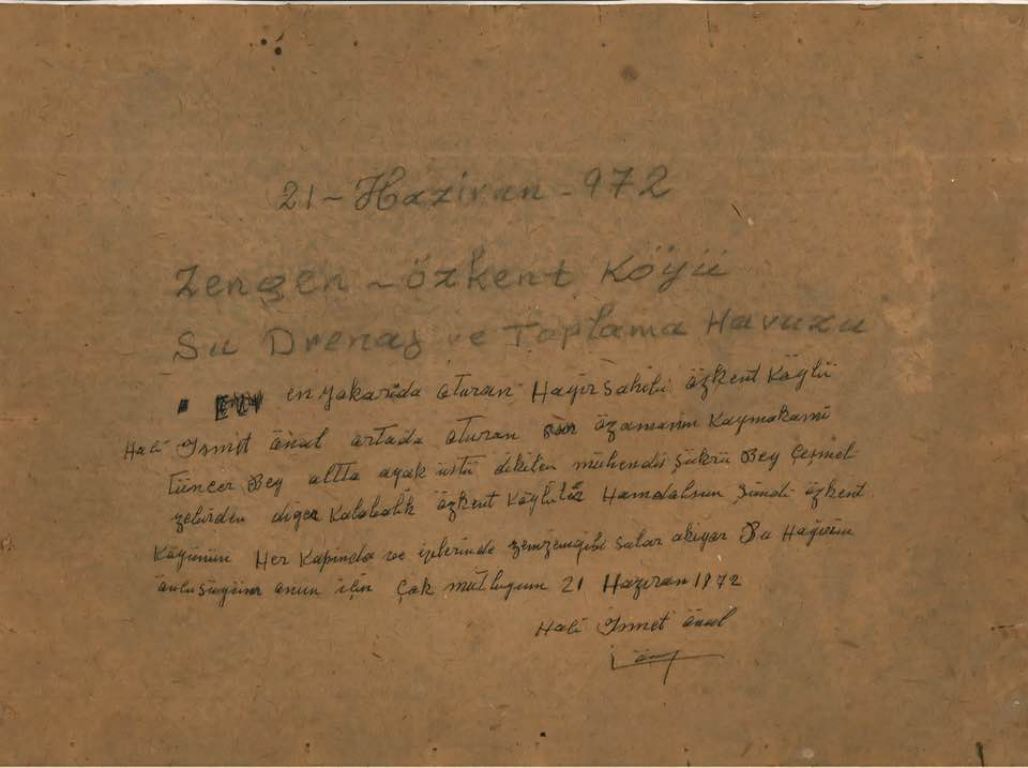 21 - Haziran - 972
Zengen - özkent Köyü
Su Drenaj ve Toplama Havuzu
en yokarıda oturan Hayır Sahibi özkent Köylü
Hali İsmet önal ortada oturan özamanın Kaymakamı
Tüncer Bey altta ayak üstü dikilen mühendis Şükrü Bey
diger Kalabalık özkent Köylülü Hamdolsun Şimdi özkent
Köyünün Her Kapında ve içlerinde zemzemgibi sular akıyor Bu Hayırın
onun için Çok mutluyum 21 Haziran 1972
Hali İsmet önal